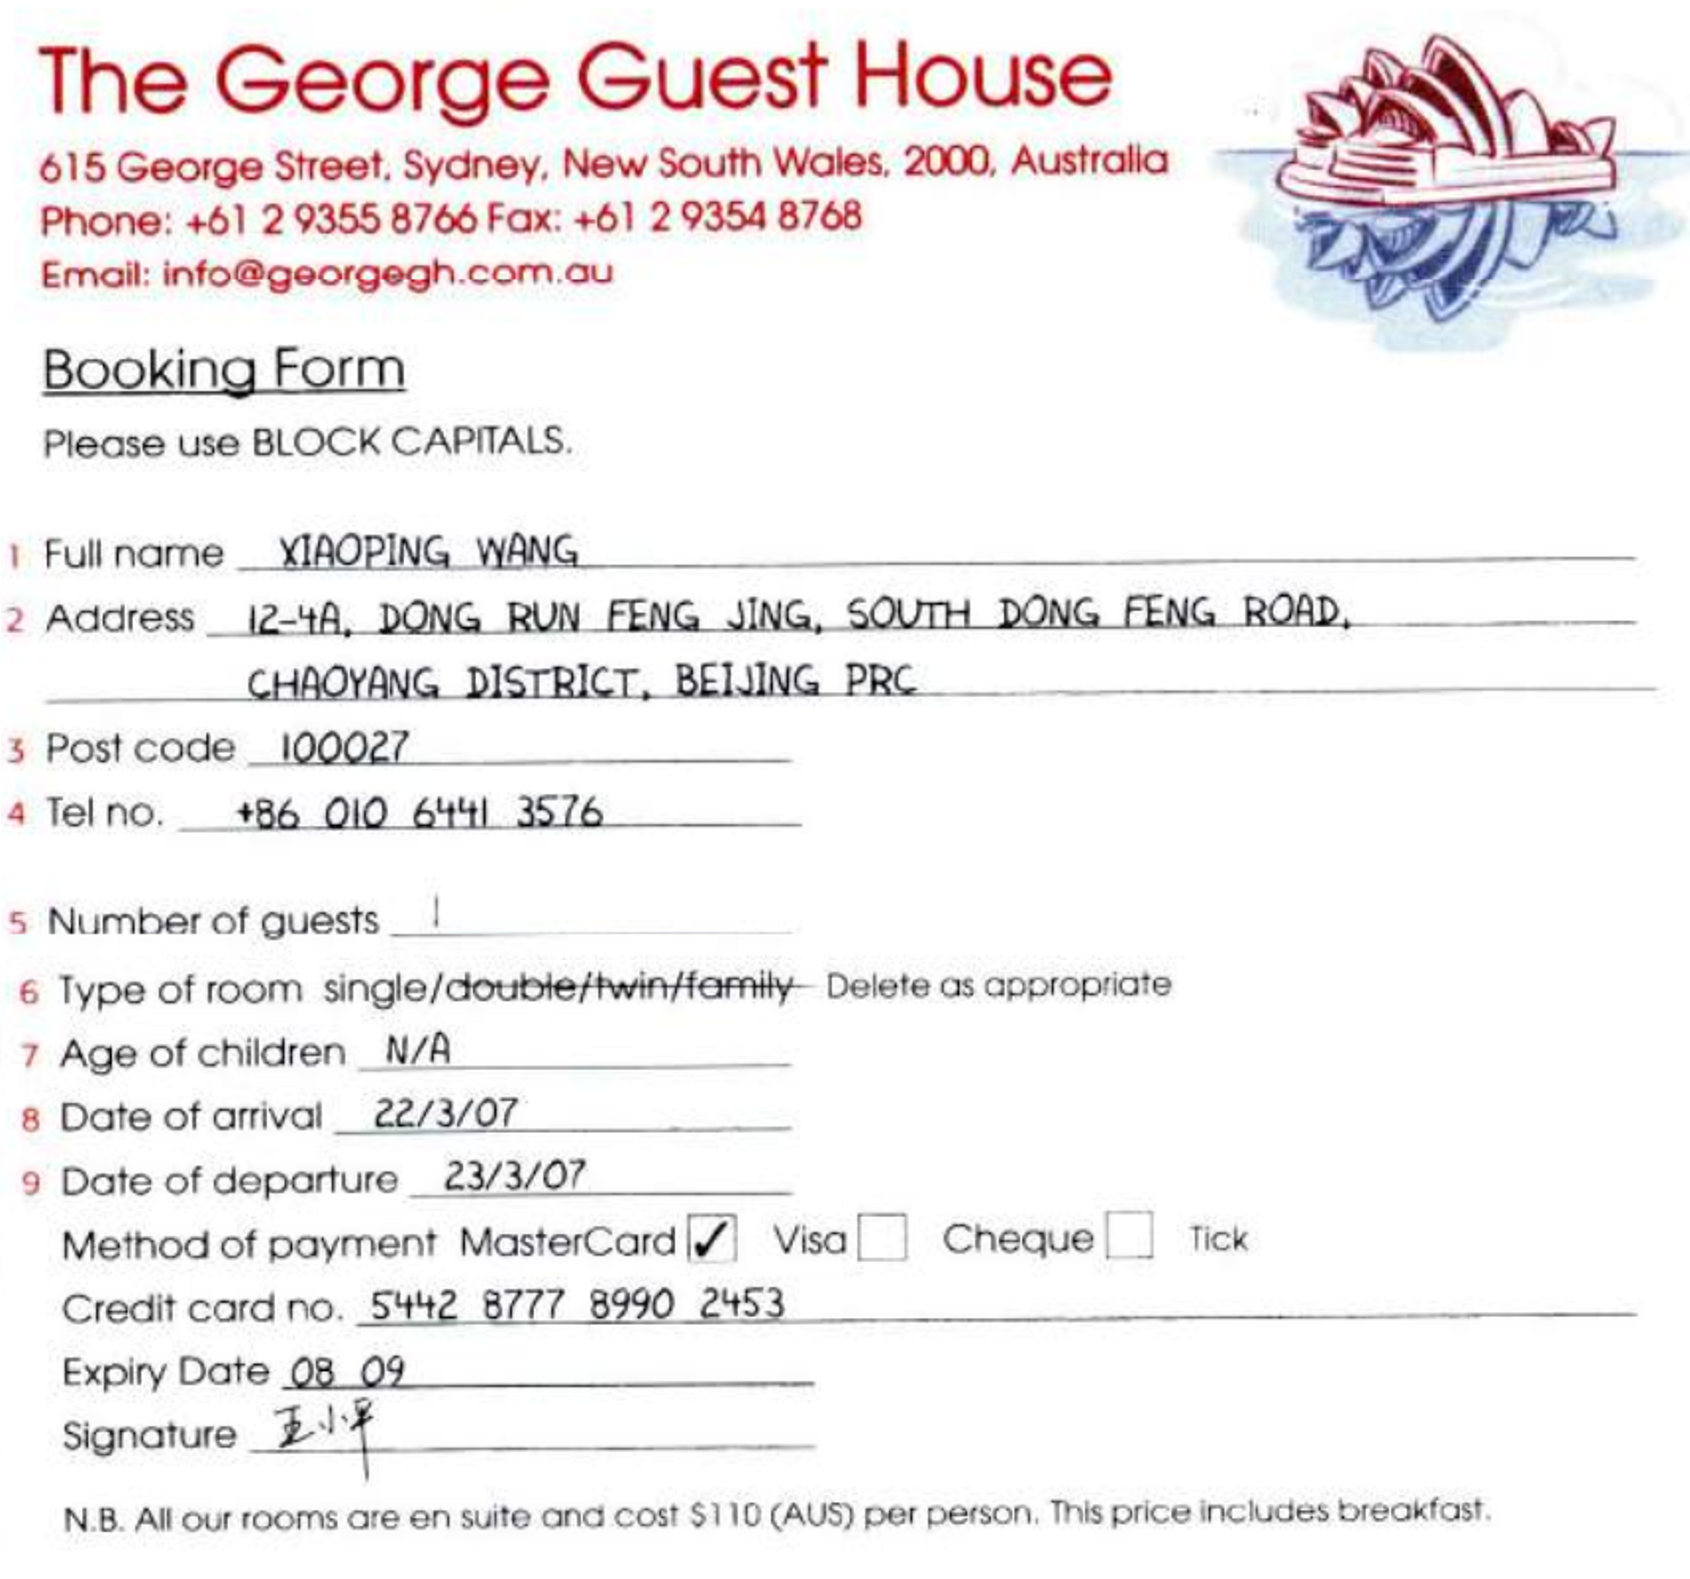 The George Guest House
615 George Street, Sydney, New South Wales, 2000, Australia
Phone: +61 2 9355 8766 Fax: +61 2 9354 8768
Email: info@georgegh.com.au
Booking Form
Please use BLOCK CAPITALS.
1 Full name XIAOPING WANG
2 Address 12-4A, DONG RUN FENG JING, SOUTH DONG FENG ROAD,
CHAOYANG DISTRICT, BEIJING PRC
3 Post code 100027
4 Tel no. +86 010 6441 3576
5 Number of guests 1
6 Type of room single/double/twin/family Delete as appropriate
7 Age of children N/A
8 Date of arrival 22/3/07
9 Date of departure 23/3/07
Method of payment MasterCard ✓ Visa Cheque Tick
Credit card no. 5442 8777 8990 2453
Expiry Date 08 09
Signature 王小平
N.B. All our rooms are en suite and cost $110 (AUS) per person. This price includes breakfast.